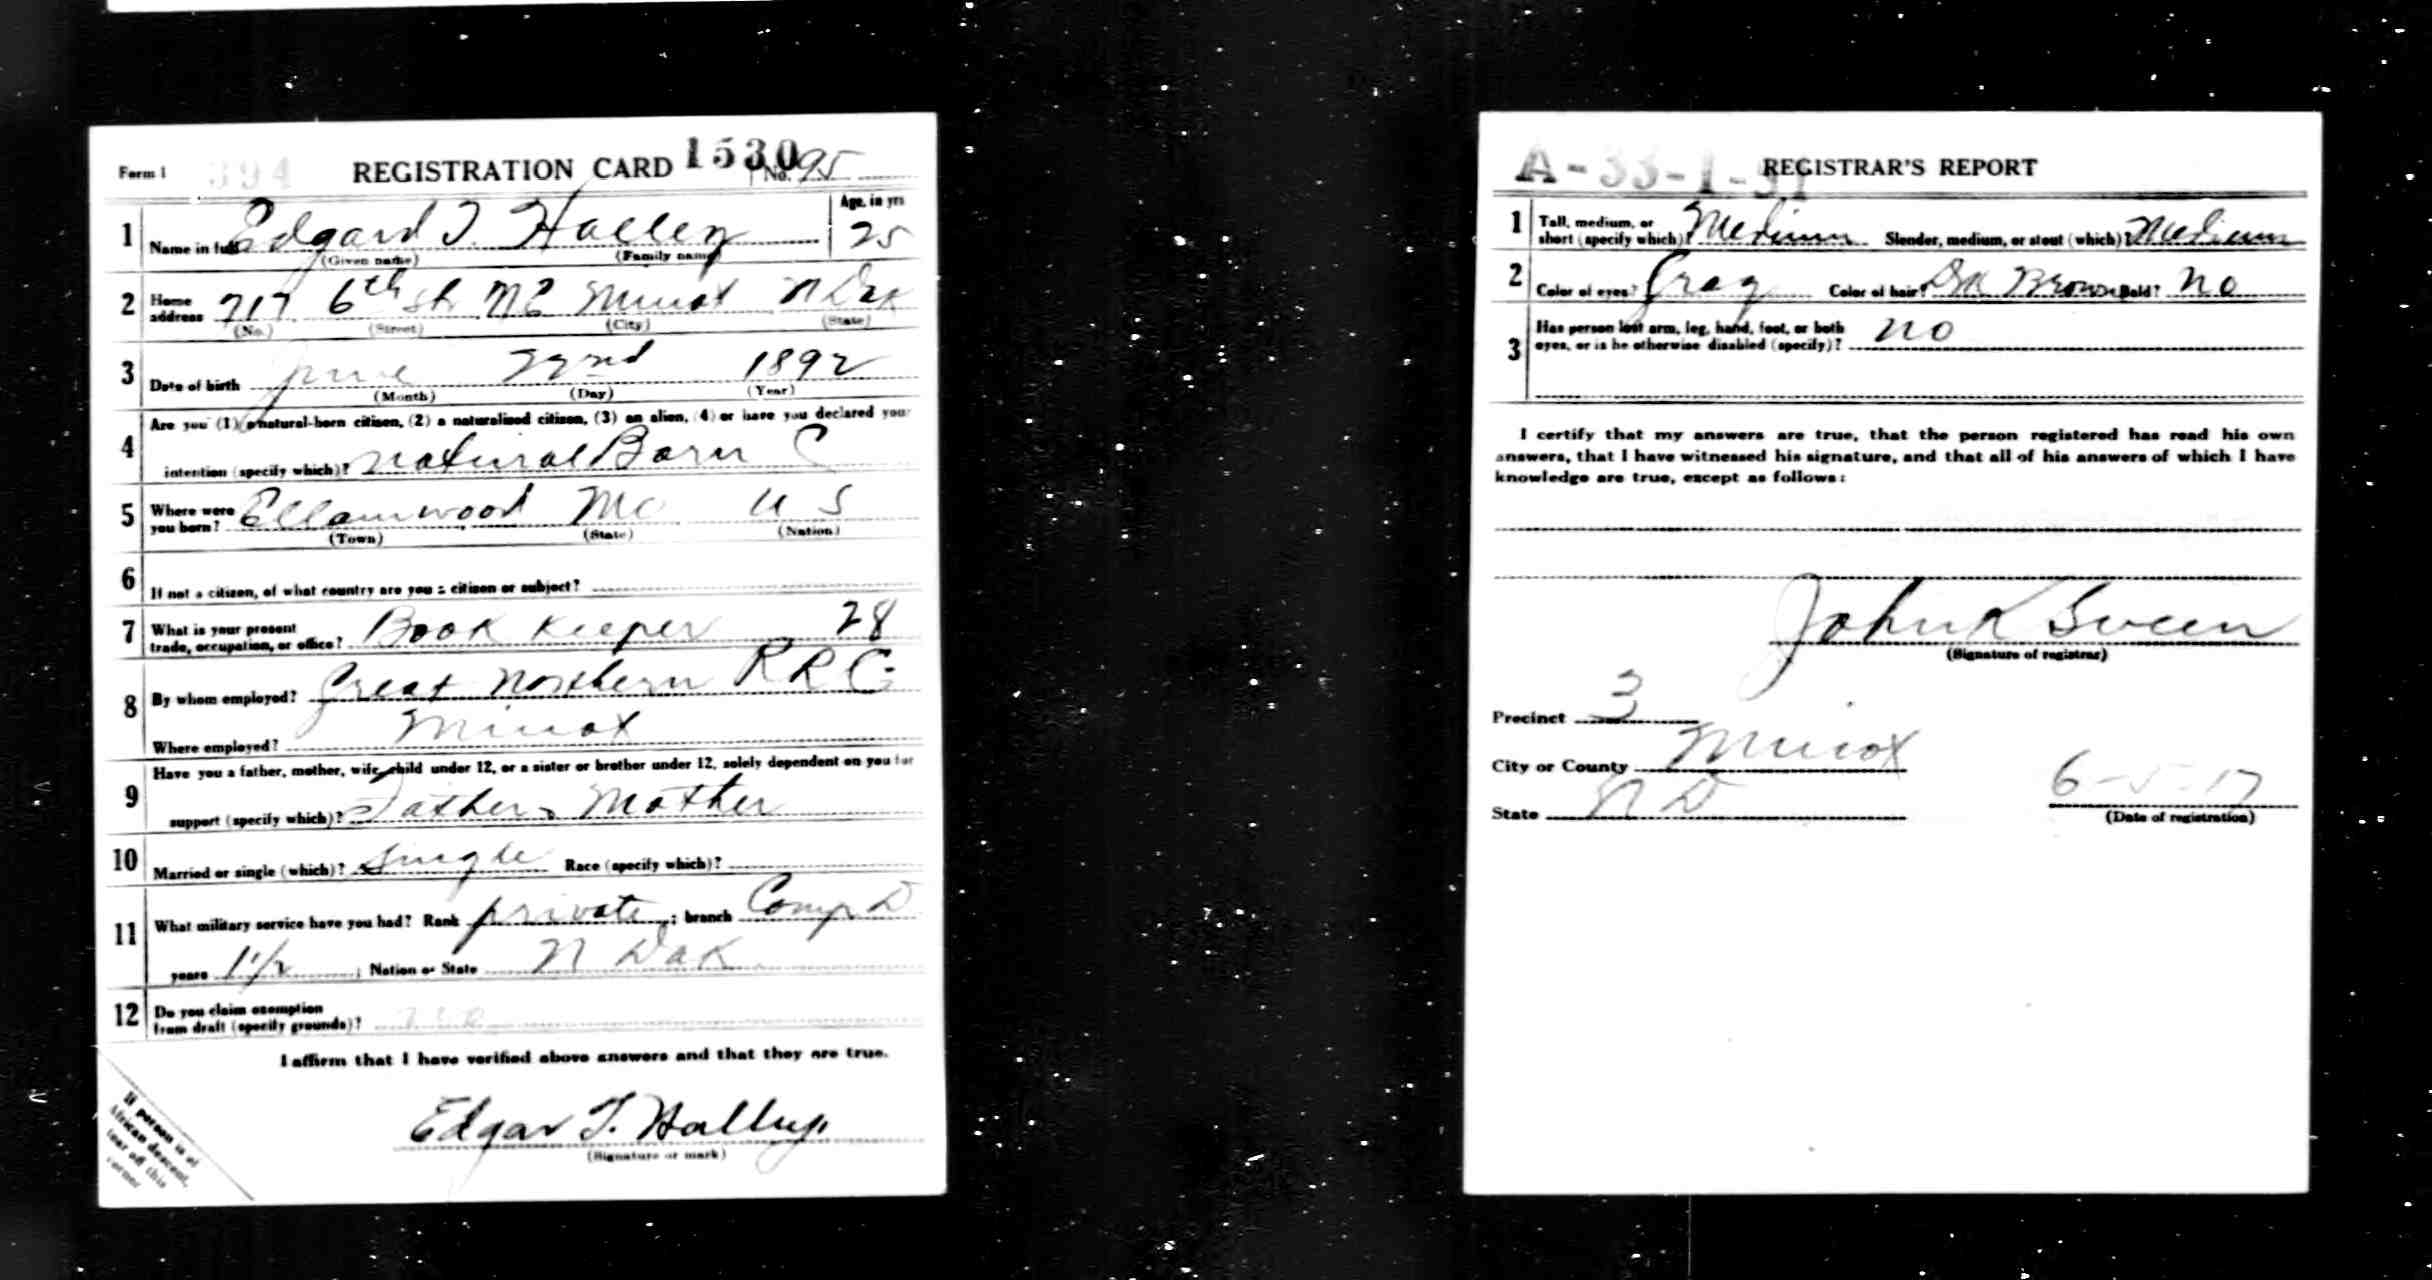 Form 1 394 REGISTRATION CARD 1530 No. 95
1 Name in full Edgard T. Halley Age, in yrs 25
(Given name) (Family name)
2 Home address 717 6th St NE Minot N Dak
(No.) (Street) (City) (State)
3 Date of birth June 22nd 1892
(Month) (Day) (Year)
4 Are you (1) a natural-born citizen, (2) a naturalized citizen, (3) an alien, (4) or have you declared your
intention (specify which)? Natural Born C
5 Where were you born? Ellamwood Mo U S
(Town) (State) (Nation)
6 If not a citizen, of what country are you a citizen or subject?
7 What is your present trade, occupation, or office? Book Keeper 28
8 By whom employed? Great Northern R R C
Where employed? Minot
9 Have you a father, mother, wife, child under 12, or a sister or brother under 12, solely dependent on you for
support (specify which)? Father, Mother
10 Married or single (which)? Single Race (specify which)?
11 What military service have you had? Rank private ; branch Comp D
years 1 1/2 ; Nation or State N Dak
12 Do you claim exemption from draft (specify grounds)?
I affirm that I have verified above answers and that they are true.
Edgar T. Halley.
(Signature or mark)
If person is of
African descent,
tear off this
corner
A-33-1-31 REGISTRAR'S REPORT
1 Tall, medium, or short (specify which)? Medium Slender, medium, or stout (which)? Medium
2 Color of eyes? Gray Color of hair? Dk Brown Bald? No
3 Has person lost arm, leg, hand, foot, or both
eyes, or is he otherwise disabled (specify)? no
I certify that my answers are true, that the person registered has read his own
answers, that I have witnessed his signature, and that all of his answers of which I have
knowledge are true, except as follows:
John K Sween
(Signature of registrar)
Precinct 3
City or County Minot
State N D 6-5-17
(Date of registration)